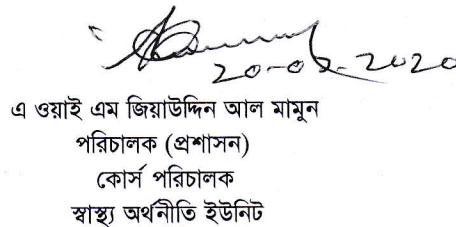 20-02-2020
এ ওয়াই এম জিয়াউদ্দিন আল মামুন
পরিচালক (প্রশাসন)
কোর্স পরিচালক
স্বাস্থ্য অর্থনীতি ইউনিট